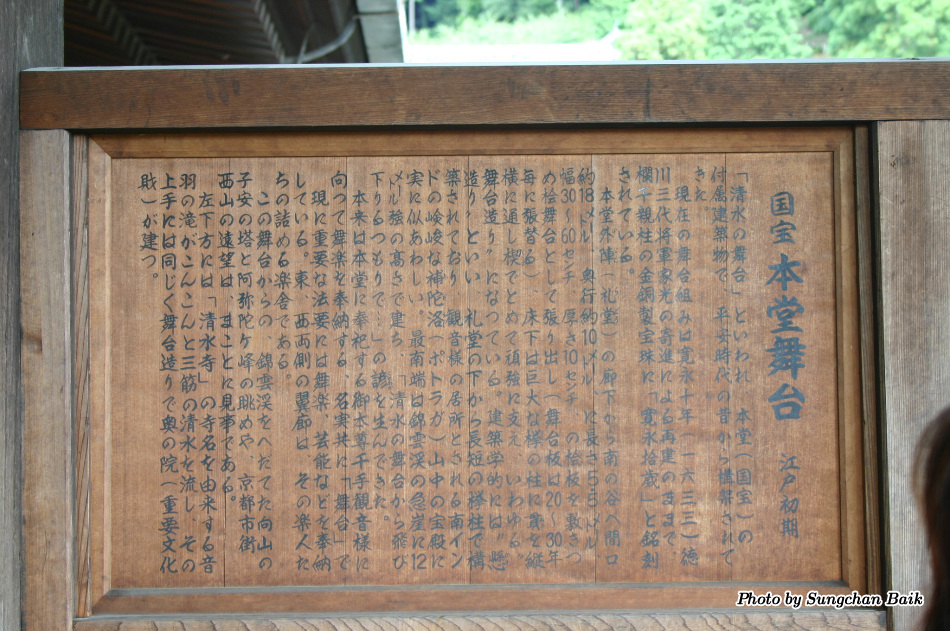 国宝 本堂舞台 江戸初期
「清水の舞台」といわれ、本堂(国宝)の
付属建築物で、平安時代の昔から構築されて
きた。
現在の舞台組みは寛永十年(一六三三)徳
川三代将軍家光の寄進による再建のままで、
欄干親柱の金銅製宝珠に「寛永拾歳」と銘刻
されている。
本堂外陣(礼堂)の廊下から南の谷へ間口
約18メートル、奥行約10メートル、に長さ5.5メートル
幅30~60センチ、厚さ10センチ、の桧板を敷きつ
め桧舞台として張り出し(舞台板は20~30年
毎に張替る)、床下は巨大な欅の柱に貫を縦
横に通し楔でとめて頑強に支え、いわゆる、
舞台造り"になっている。建築学的には"懸
造り"といい、礼堂の下から長短の欅柱で構
築されており、観音様の居所とされる南イン
ドの峻峻な補陀洛(ポトラガ)山中の宝殿に
実に似あわしい。最南端は錦雲渓の急崖に12
メートル強の高さで建ち、「清水の舞台から飛び
下りるつもりで…」の諺を生んできた。
本来は本堂に奉祀する御本尊千手観音様に
向って舞楽を奉納する、名実共に「舞台」で
現に重要な法要には舞楽、芸能などを奉納
している。東、西両側の翼廊は、その楽人た
ちの詰める楽舎である。
この舞台からの、錦雲渓をへだてた向山の
子安の塔と阿弥陀ヶ峰の眺めや、京都市街、
西山の遠望は、まことに見事である。
左下方には「清水寺」の寺名を由来する音
羽の滝がこんこんと三筋の清水を流し、その
上手には同じく舞台造りで奥の院(重要文化
財)が建つ。
Photo by Sungchan Baik